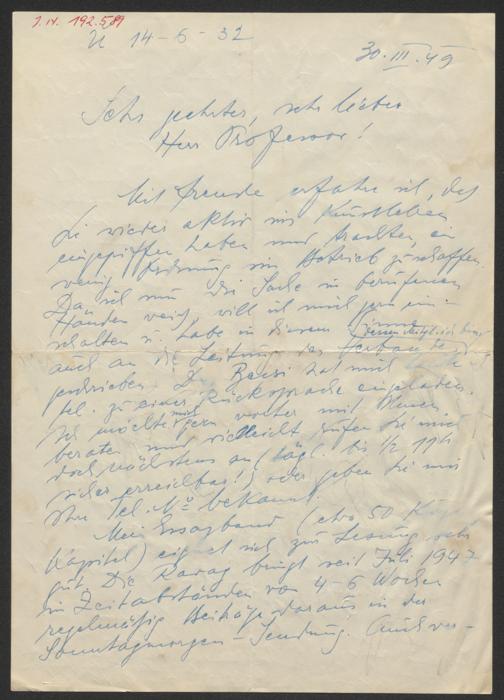 J.N. 192.589
U 14-6-32
30. III. 49
Sehr geehrter, sehr lieber
Herr Professor!
Mit Freude erfahre ich, daß
Sie wieder aktiv ins Kunstleben
eingegriffen haben und trachten, ein
wenig Ordnung im Betrieb zu schaffen.
Da ich nun die Sache in berufenen
Händen weiß, will ich mich gern ein-
schalten u. habe in diesem Sinne
auch an die Leitung des Verbandes
geschrieben. Dr. hat mich
tel. zu einer Rücksprache eingeladen.
Ich möchte mich gern vorher mit Ihnen
beraten und vielleicht rufen Sie mich
doch nächstens an (tägl. bis ½ 11h
sicher erreichbar!) oder geben Sie mir
Ihre Tel. No bekannt.
Mein Essayband (etwa 50
Kapitel) eignet sich zur Lesung sehr
gut. Die Ravag bringt seit Juli 1947
in Zeitabständen von 4-6 Wochen
regelmäßig Beiträge daraus in der
Sonntagmorgen-Sendung. Auch ver-